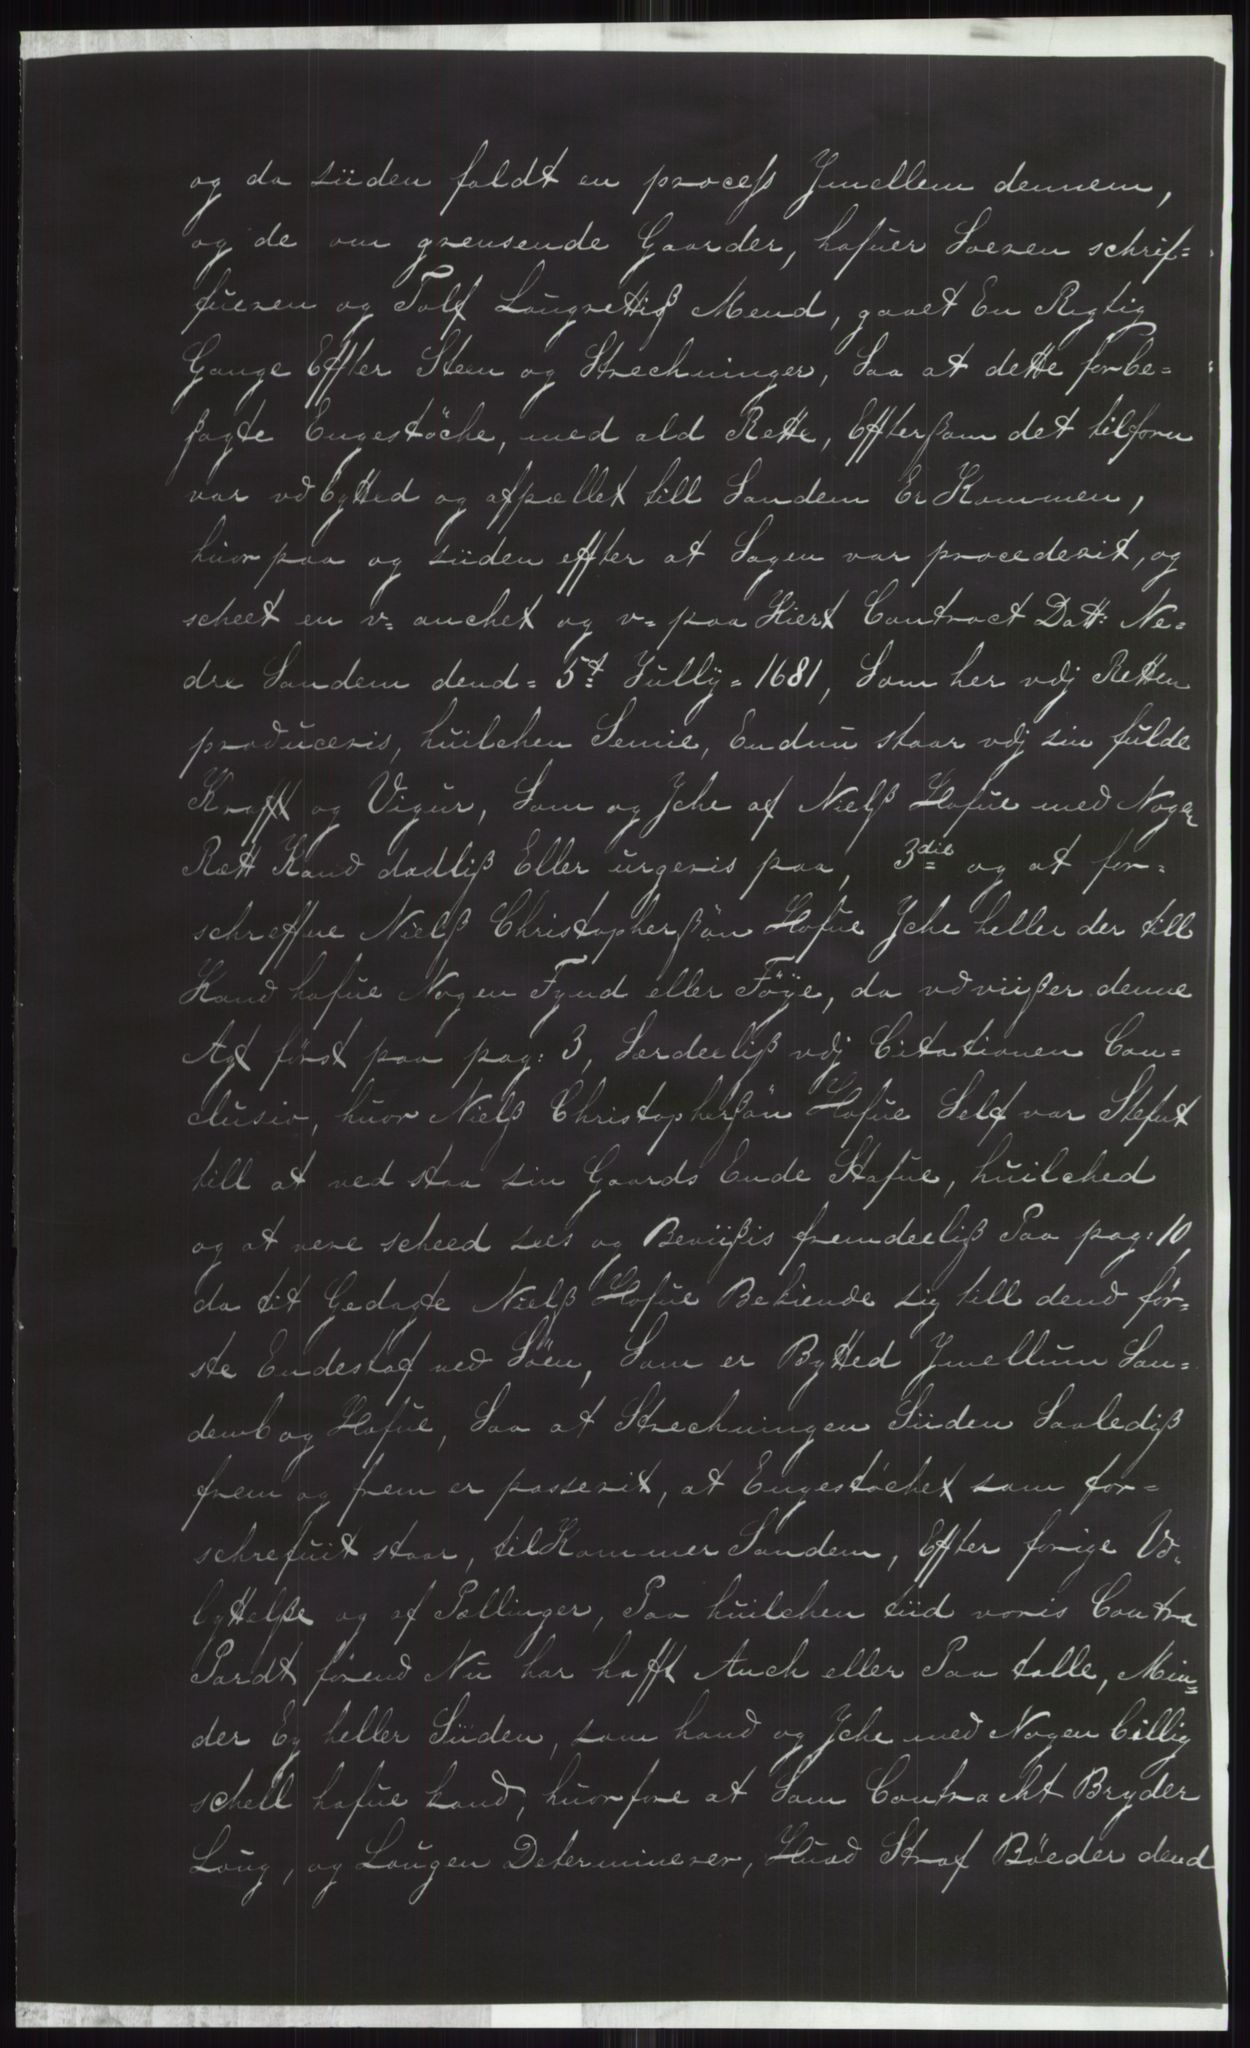 og da siiden faldt en process Ymellem dennem,
og de om grensende Gaarder, hafuer Soeren schrif-
fueren og Tolf Laugrettiß Mend, gaaet En Rigtig
Gange Effter Steen og Strechninger, Saa at dette forbe-
ßagte Engestöche, med ald Rette, Effterßom det tilforn
var vdbytted og afpællet till Sandem Er Kommen,
huorpaa og siiden effter at Sagen var procederit, og
scheet en v= anchet og v= paa Kiert Contract Datt: Ne=
dre Sandem dend= 5t Jully= 1681, Som her vdj Retten
produceris, huilchen Semie, Endnu staar vdj sin fulde
Krafft og Vigur, Som og Jche af Nielß Hafue med Nogen
Rætt Kand dadliß Eller urgeris paa, 3die og at for=
schreffne Nielß Christopherßön Hofue Jche heller der till
Kand hafue Nogen Fynd eller Föÿe, da vdviißer denne
Agt först paa pag: 3, Særdeeliß vdj Citationen Con=
clusio, huor Nielß Christopherßön Hofue Self var Stefnt
till at ved staa sin Gaards Ende Stafue, huilched
og at vere scheed sees og Beviißis fremdeeliß Paa pag: 10,
da tit Gedagte Nielß Hofue Bekiende sig till dend för-
ste Endestaf ved Söen, Som er Bytted Ymellum San-
demb og Hofue, Saa at Strechningen Siiden Saalediß
frem og frem er passerit, at Engestöchet som for=
schrefuit staar, tilKommer Sandem, Effter forige Vd-
byttelße og af Pællinger, Paa huilchen tiid voris Contra
Pardt förend Nu har hafft Anch eller Paa talle, Min=
der Ey heller Siiden, som hand og Jche med Nogen billig
schell hafue kand, huorfore at Som Contracht Bryder
Loug, og Lougen Determinerer, Huad Straf Böeder dend